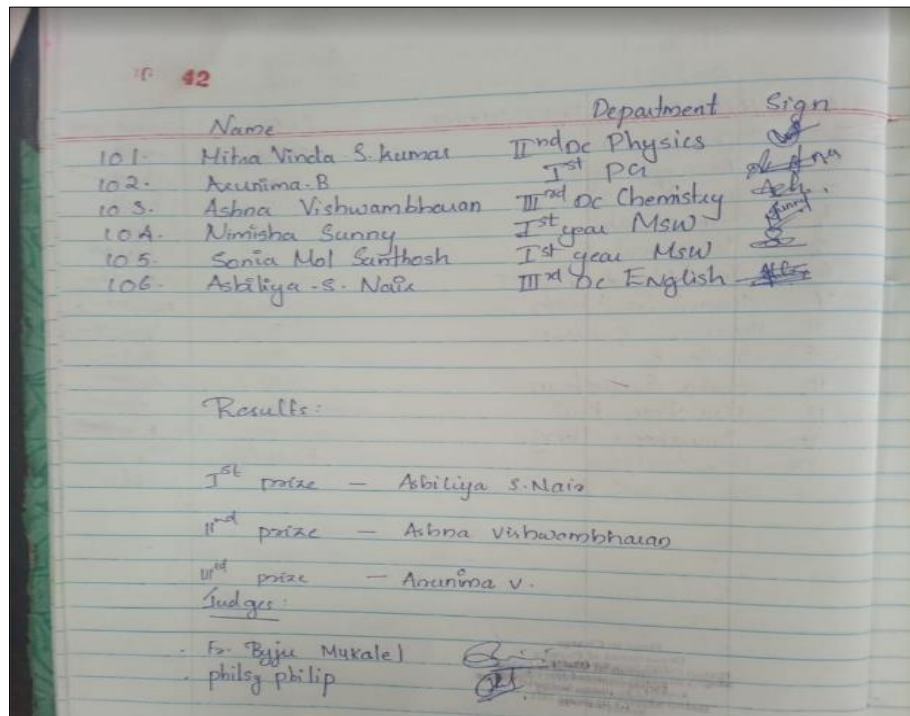 42
Name Department Sign
101. Mitra Vinda S. Kumar IInd Dc Physics
102. Arunima.B Ist PG
103. Ashna Vishwambharan IIIrd Dc Chemistry Ash.
104. Nimisha Sunny Ist year MSW Sunny
105. Sonia Mol Santhosh Ist year MSW
106. Asbiliya.S. Nair IIIrd Dc English
Results:
Ist prize — Asbiliya S.Nair
IInd prize — Ashna Vishwambharan
IIIrd prize — Arunima V.
Judges:
Fr. Byju Mukalel
philsy philip